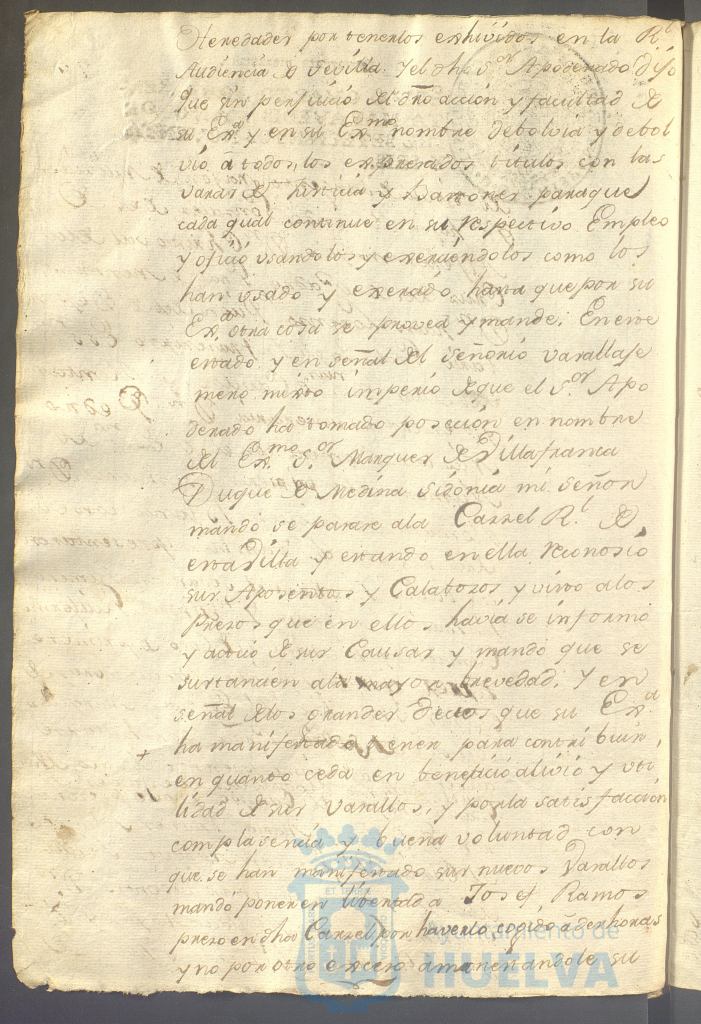 Heredades por tenerlos exhividos en la R.l
Audiencia de Sevilla. Y el dho S.or Apoderado dijo
que sin perjuicio del dro accion y facultad de
su Ex.a y en su Ex.mo nombre debolvia y debol
vió á todos los expresados titulos con las
varas de justicia y Bastones para que
cada qual continue en su respectivo Empleo
y ofició usandolos y exerciendolos como los
han usado y exersido, hasta que por su
Ex.a otra cosa se provea y mande: En este
estado y en señal del señorio vasallaje
mero misto imperio de que el S.or Apo
derado ha tomado poseción en nombre
del Ex.mo S.or Marques de Villafranca
Duque de Medina Sidonia mi señor
mandó se pasase ala Carzel R.l de
esta Villa y estando en ella reconosió
sus Aposentos y Calabozos y visitó alos
Presos que en ellos havia se informó
y actuó de sus Causas y mandó que se
sustancien ala mayor brevedad. Y en
señal delos grandes deceos que su Ex.a
ha manifestado tener para contribuir
en quanto ceda en beneficio alivio y uti
lidad de sus vasallos, y por la satisfacción
complasencia y buena voluntad con
que se han manifestado sus nuevos Vasallos
mandó poner en libertad a Josef Ramos
preso en dha Carzel por haverlo cogido á deshoras
y no por otro exceso amonestandole su
ET TERRÆ
Ayuntamiento de
HUELVA